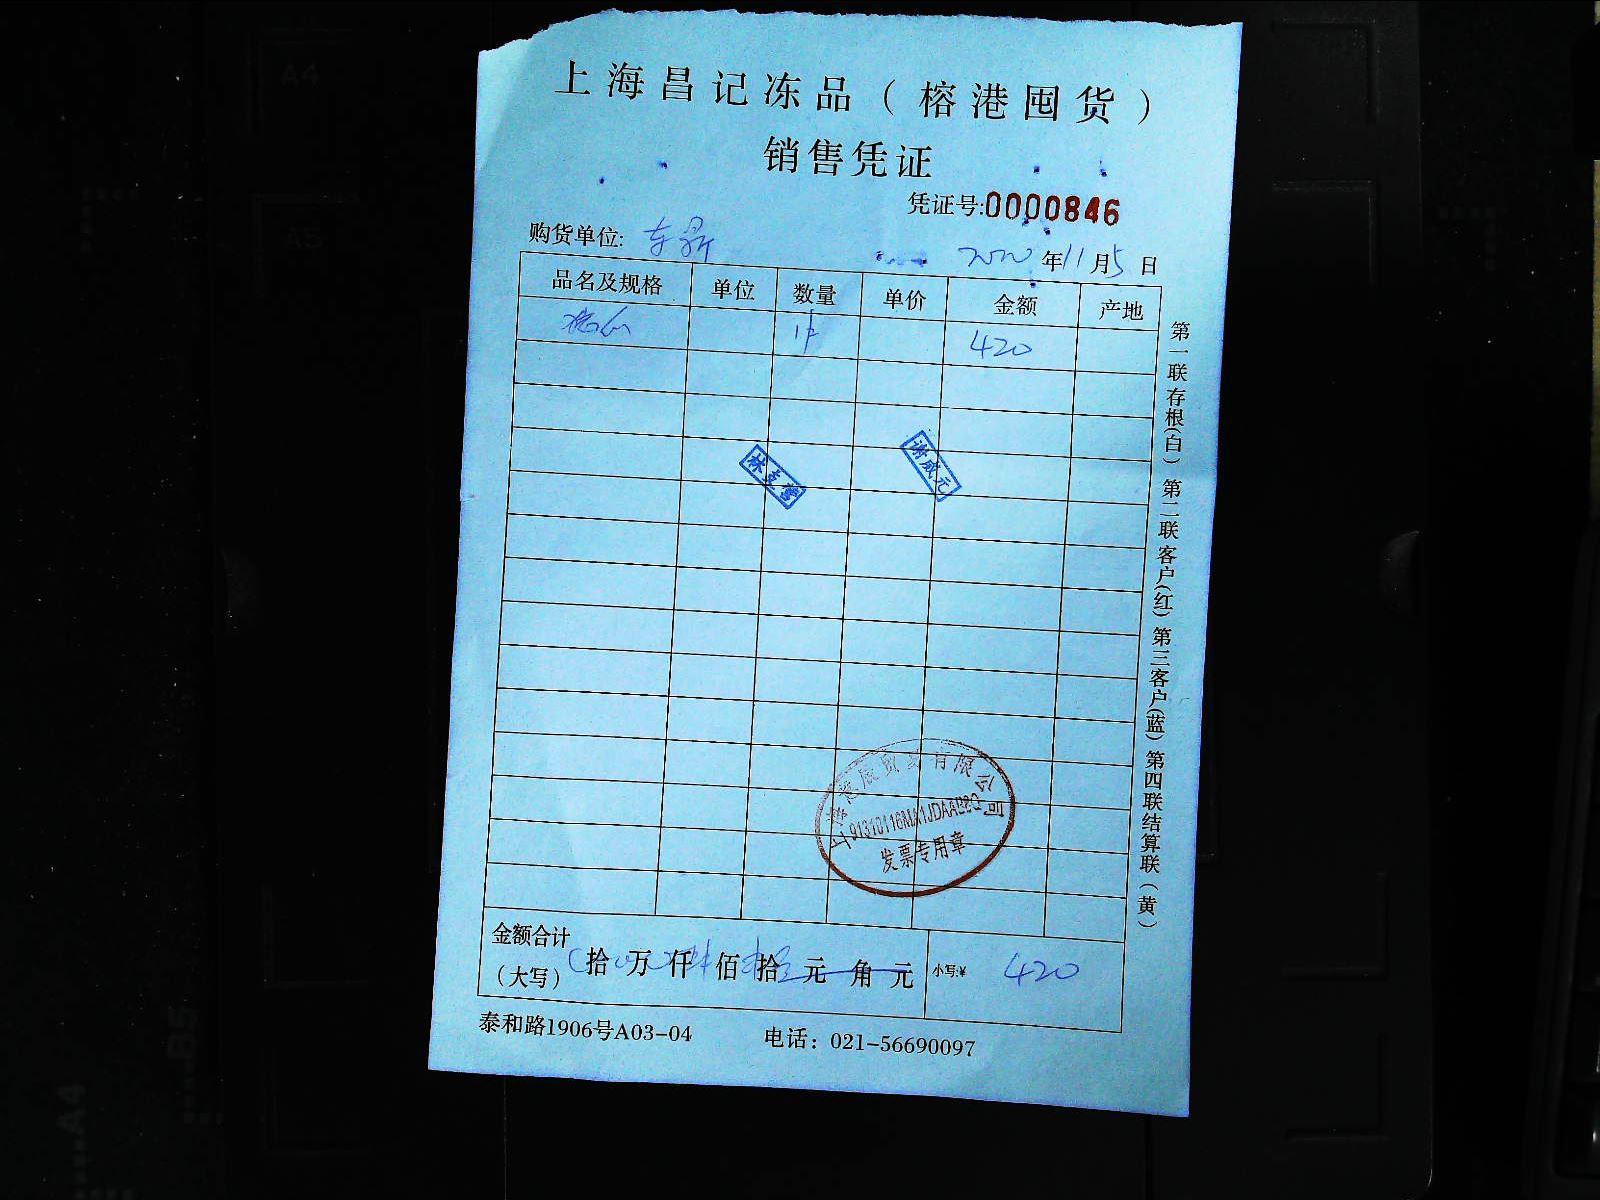 上海昌记冻品（榕港囤货）
销售凭证
凭证号:0000846
购货单位:
2020年11月5日
品名及规格 单位 数量 单价 金额 产地
1件 420
林 谢成元
上海 辰贸易有限公司
91310116MA1JDAAB8Q
发票专用章
金额合计
（大写） 拾 万 仟 肆 佰 拾 元 角 元 小写:¥ 420
泰和路1906号A03-04 电话：021-56690097
第一联存根(白) 第二联客户(红) 第三客户(蓝) 第四联结算联(黄)
A4
A5
B5
A4